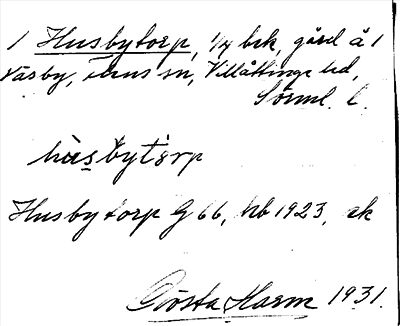 1 Husbytorp, 1/4 brk, gård å 1
Väsby, sn, Villåttinge hd,
Sörml. l.
hùsbytòrp
Husbytorp G 66, hb 1923, ek
Gösta Harm 1931.